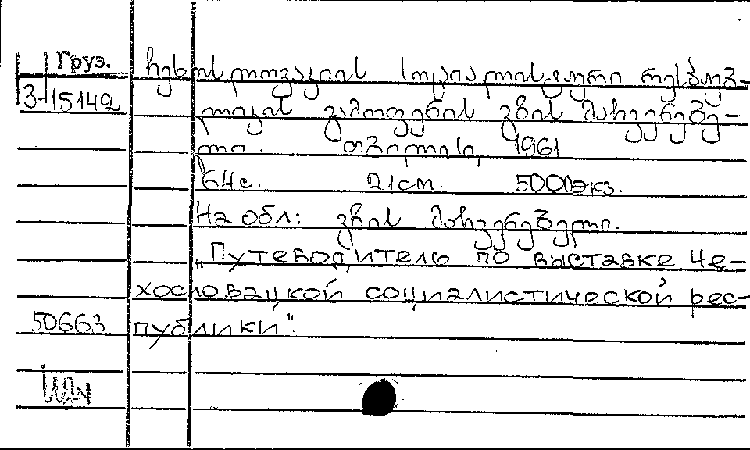 Груз. ჩეხოსლოვაკიის სოციალისტური რესპუბ-
3-15142 ლიკის გამოფენის გზის მაჩვენებე-
ლი. თბილისი, 1961
64с. 21см. 5000экз.
На обл: გზის მაჩვენებელი.
"Путеводитель по выставке Че-
хословацкой социалистической рес-
50663 публики".